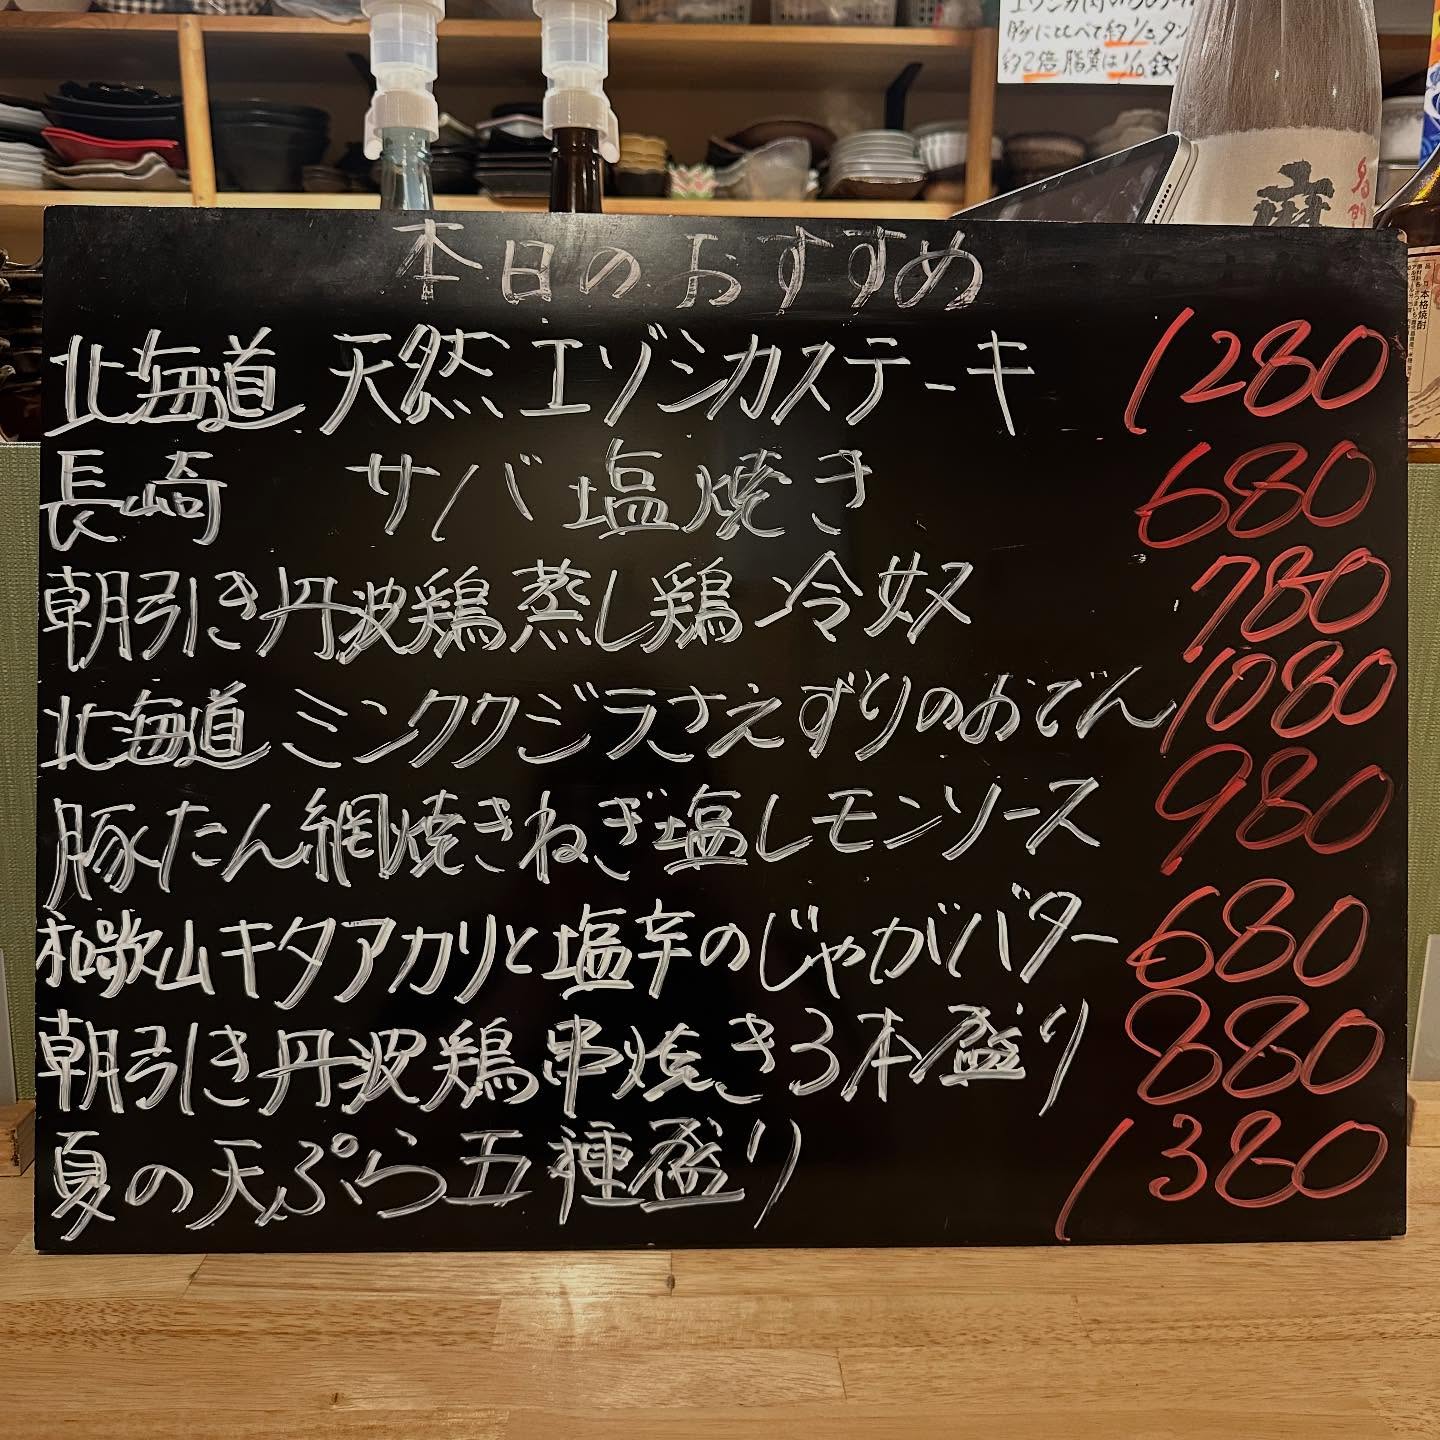 エゾシカ肉
豚にくらべて約1/3、タン
約2倍 脂質は1/10、鉄
本日のおすすめ
北海道 天然エゾシカステーキ 1280
長崎 サバ塩焼き 680
朝引き丹波鶏蒸し鶏冷奴 780
北海道 ミンククジラさえずりのおでん 1080
豚たん網焼きねぎ塩レモンソース 980
和歌山キタアカリと塩辛のじゃがバター 680
朝引き丹波鶏串焼き3本盛り 880
夏の天ぷら五種盛り 1380
本格焼酎